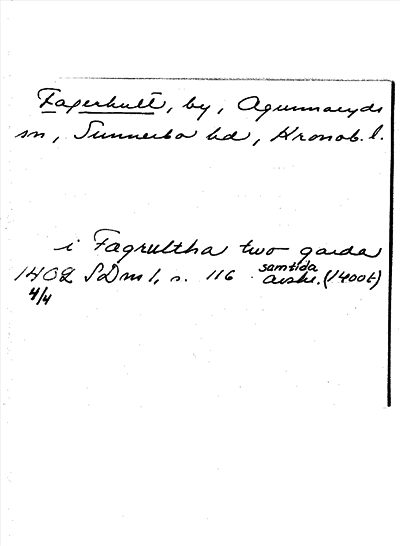 Fagerhult, by, Agunnaryds
sn, Sunnerbo hd, Kronob. l.
i Fagrultha two garda
1402 SDm 1, s. 116 samtida
4/4 avskr. (1400t)